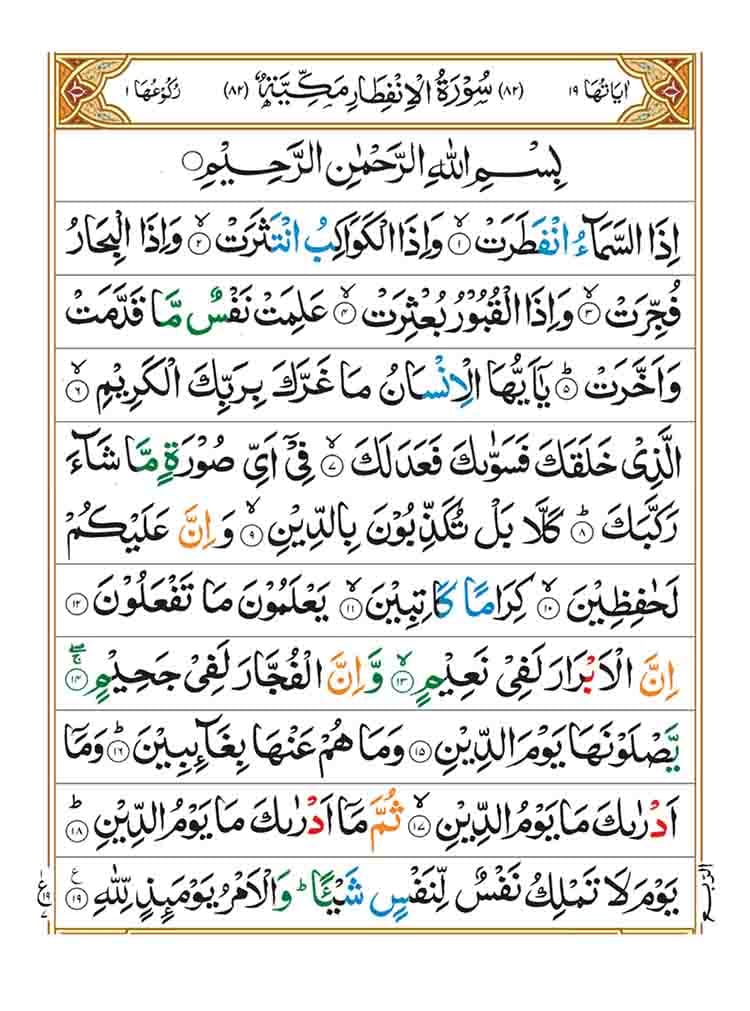 اٰيَاتُهَا ١٩ (٨٢) سُوْرَةُ الْاِنْفِطَارِ مَكِّيَّةٌ (٨٢) رُكُوْعُهَا ١
بِسْمِ اللهِ الرَّحْمٰنِ الرَّحِيْمِ ○
اِذَا السَّمَآءُ انْفَطَرَتْ ۙ﴿١﴾ وَاِذَا الْكَوَاكِبُ انْتَثَرَتْ ۙ﴿٢﴾ وَاِذَا الْبِحَارُ
فُجِّرَتْ ۙ﴿٣﴾ وَاِذَا الْقُبُوْرُ بُعْثِرَتْ ۙ﴿٤﴾ عَلِمَتْ نَفْسٌ مَّا قَدَّمَتْ
وَاَخَّرَتْ ؕ﴿٥﴾ يٰۤاَيُّهَا الْاِنْسَانُ مَا غَرَّكَ بِرَبِّكَ الْكَرِيْمِ ۙ﴿٦﴾
الَّذِيْ خَلَقَكَ فَسَوّٰىكَ فَعَدَلَكَ ۙ﴿٧﴾ فِيْۤ اَيِّ صُوْرَةٍ مَّا شَآءَ
رَكَّبَكَ ؕ﴿٨﴾ كَلَّا بَلْ تُكَذِّبُوْنَ بِالدِّيْنِ ۙ﴿٩﴾ وَاِنَّ عَلَيْكُمْ
لَحٰفِظِيْنَ ۙ﴿١٠﴾ كِرَامًا كَاتِبِيْنَ ۙ﴿١١﴾ يَعْلَمُوْنَ مَا تَفْعَلُوْنَ ﴿١٢﴾
اِنَّ الْاَبْرَارَ لَفِيْ نَعِيْمٍ ۙ﴿١٣﴾ وَّاِنَّ الْفُجَّارَ لَفِيْ جَحِيْمٍ ۚۖ﴿١٤﴾
يَّصْلَوْنَهَا يَوْمَ الدِّيْنِ ﴿١٥﴾ وَمَا هُمْ عَنْهَا بِغَآئِبِيْنَ ؕ﴿١٦﴾ وَمَاۤ
اَدْرٰىكَ مَا يَوْمُ الدِّيْنِ ۙ﴿١٧﴾ ثُمَّ مَاۤ اَدْرٰىكَ مَا يَوْمُ الدِّيْنِ ؕ﴿١٨﴾
يَوْمَ لَا تَمْلِكُ نَفْسٌ لِّنَفْسٍ شَيْئًا ؕ وَالْاَمْرُ يَوْمَئِذٍ لِّلّٰهِ ﴿١٩﴾ ع
الرّبع
ع ١٩ ٧